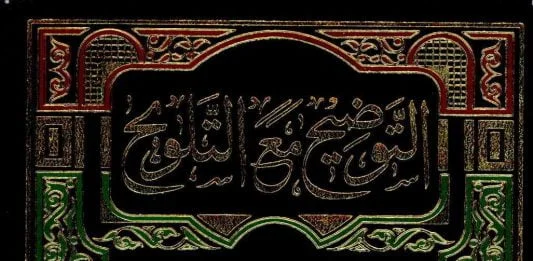 التَّوضِيح مَعَ التَّلوِيح